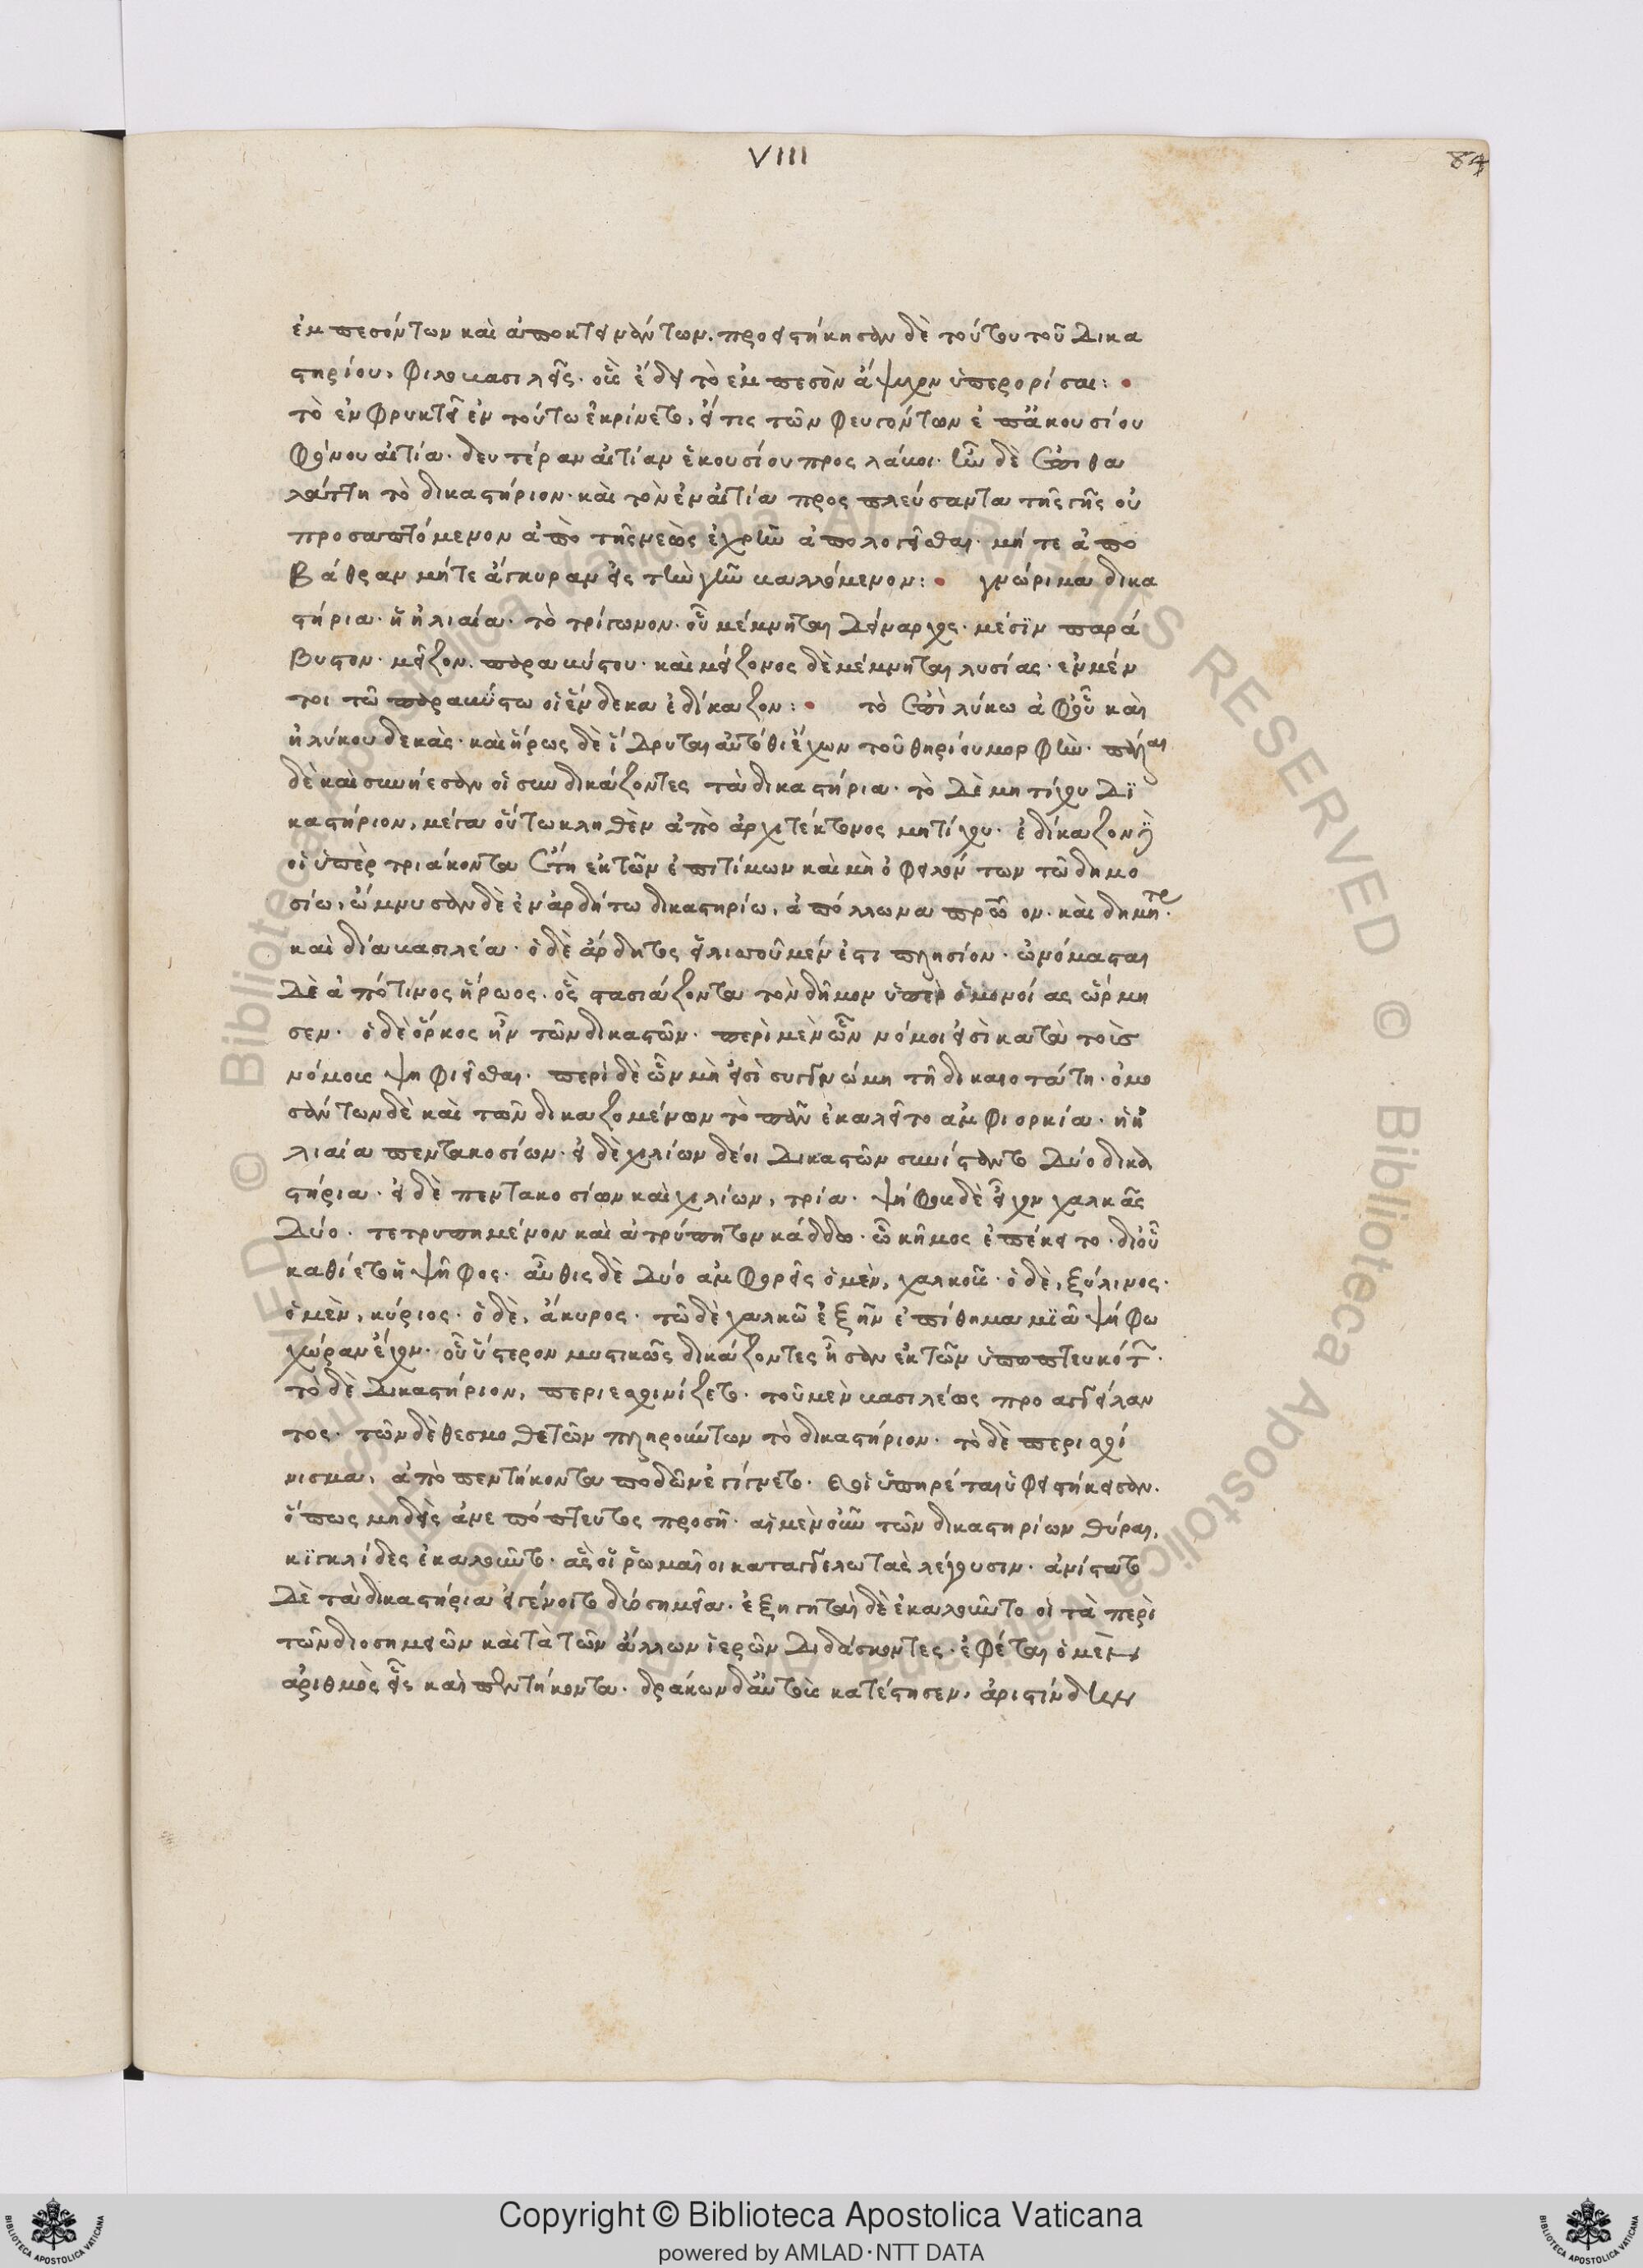 VIII
84
ἐμπεσόντων καὶ ἀποκτεινάντων. προειστήκησαν δὲ τούτου τοῦ δικα
στηρίου, φιλοβασιλεῖς. οὓς ἔδει τὸ ἐμπεσὸν ἄψυχον ὑπερορίσαι:
τὸ ἐν φρυκτεῖ ἐν τούτω ἐκρίνετο, εἴ τις τῶν φευγόντων ἐπ' ἀκουσίου
φόνου αἰτία. δευτέραν αἰτίαν ἑκουσίου προσλάβοι. ἦν δὲ ἐπὶ θα
λάττη τὸ δικαστήριον. καὶ τὸν ἐν αἰτία προσπλεύσαντα τῆς γῆς οὐ
προσαπτόμενον ἀπὸ τῆς νεὼς ἐχρῆν ἀπολογεῖσθαι. μήτε ἀπο
βάθραν μήτε ἄγκυραν εἰς τὴν γῆν βαλλόμενον: γνώριμα δικα
στήρια. ἡ ἡλιαία. τὸ τρίγωνον. οὗ μέμνηται δείναρχος. μέσϊν παρά
βυστον. μεῖζον. παραβύστου. καὶ μείζονος δὲ μέμνηται λυσίας. ἐν μέν
τοι τῶ παραβύστω οἱ ἕνδεκα ἐδίκαζον: τὸ ἐπὶ λύκω ἀφ' οὗ καὶ
ἡ λύκου δεκὰς. καὶ ἥρως δὲ ἵδρυται αὐτόθι ἔχων τοῦ θηρίου μορφὴν.
δὲ καὶ συνήεσαν οἱ συνδικάζοντες τὰ δικαστήρια. τὸ δὲ μητίχου δϊ
καστήριον, μέγα οὕτω κληθὲν ἀπὸ ἀρχιτέκτονος μητίχου. ἐδίκαζον
οἱ ὑπὲρ τριάκοντα ἔτη ἐκ τῶν ἐπιτίμων καὶ μὴ ὀφειλόντων τῶ δημο
σίω. ὤμνυσαν δὲ ἐν ἀρδήτω δικαστηρίω, ἀπόλλωνα πατρῶον. καὶ δήμητρ.
καὶ δία βασιλέα. ὁ δὲ ἄρδητος ἠλισσοῦ μέν ἐστι πλησίον. ὠνόμασται
δὲ ἀπό τινος ἥρωος. ὃς στασιάζοντα τὸν δῆμον ὑπὲρ ὁμονοίας ὥρμη
σεν. ὁ δὲ ὅρκος ἦν τῶν δικαστῶν. περὶ μὲν ὧν νόμοι εἰσὶ κατὰ τοὺς
νόμους ψηφιεῖσθαι. περὶ δὲ ὧν μὴ εἰσὶ συγγνώμη τῆ δικαιοτάτη. ὀμο
σάντων δὲ καὶ τῶν δικαζομένων τὸ πᾶν ἐκαλεῖτο ἀμφιορκία. ἡ ἡ
λιαία πεντακοσίων. εἰ δὲ χιλίων δέοι δικαστῶν συνίσταντο δύο δικα
στήρια. εἰ δὲ πεντακοσίων καὶ χιλίων, τρία. ψήφους δὲ εἶχον χαλκᾶς
δύο. τετρυπημένον καὶ ἀτρύπητον κάδδον. ὧ κῆμος ἐπέκειτο. δι' οὗ
καθίετο ἡ ψῆφος. αὖθις δὲ δύο ἀμφορεῖς ὁ μὲν, χαλκοῦς. ὁ δὲ, ξύλινος.
ὁ μὲν, κύριος. ὁ δὲ, ἄκυρος. τῶ δὲ χαλκῶ ἐξῆν ἐπίθημα μϊᾶ ψήφω
χώραν ἔχον. οὗ ὕστερον μυστικῶς δικάζοντες ἦσαν ἐκ τῶν ὑποπτευκότ.
τὸ δὲ δικαστήριον, περιεσχινίζετο. τοῦ μὲν βασιλέως προαγγείλαν
τος. τῶν δὲ θεσμοθετῶν πληρούντων τὸ δικαστήριον. τὸ δὲ περισχί
νισμα. ἀπὸ πεντήκοντα ποδῶν ἐγίγνετο. οἱ ὑπηρέται ὑφειστήκεισαν.
ὅπως μηδεὶς ἀνεπόπτευτος προσῆ. αἱ μὲν οὖν τῶν δικαστηρίων θύραι,
κϊγκλίδες ἐκαλοῦντο. ἃς οἱ ῥωμαῖοι καταγγελωτὰς λέγουσιν. ἀνίστατο
δὲ τὰ δικαστήρια εἰ γένοιτο διοσημεία. ἐξηγηταὶ δὲ ἐκαλοῦντο οἱ τὰ περὶ
τῶν διοσημειῶν καὶ τὰ τῶν ἄλλων ἱερῶν διδάσκοντες. ἐφέται ὁ μὲν
ἀριθμὸς εἷς καὶ πεντήκοντα. δράκων δ' αὐτοὺς κατέστησεν, ἀριστίνδην
Copyright © Biblioteca Apostolica Vaticana
powered by AMLAD·NTT DATA